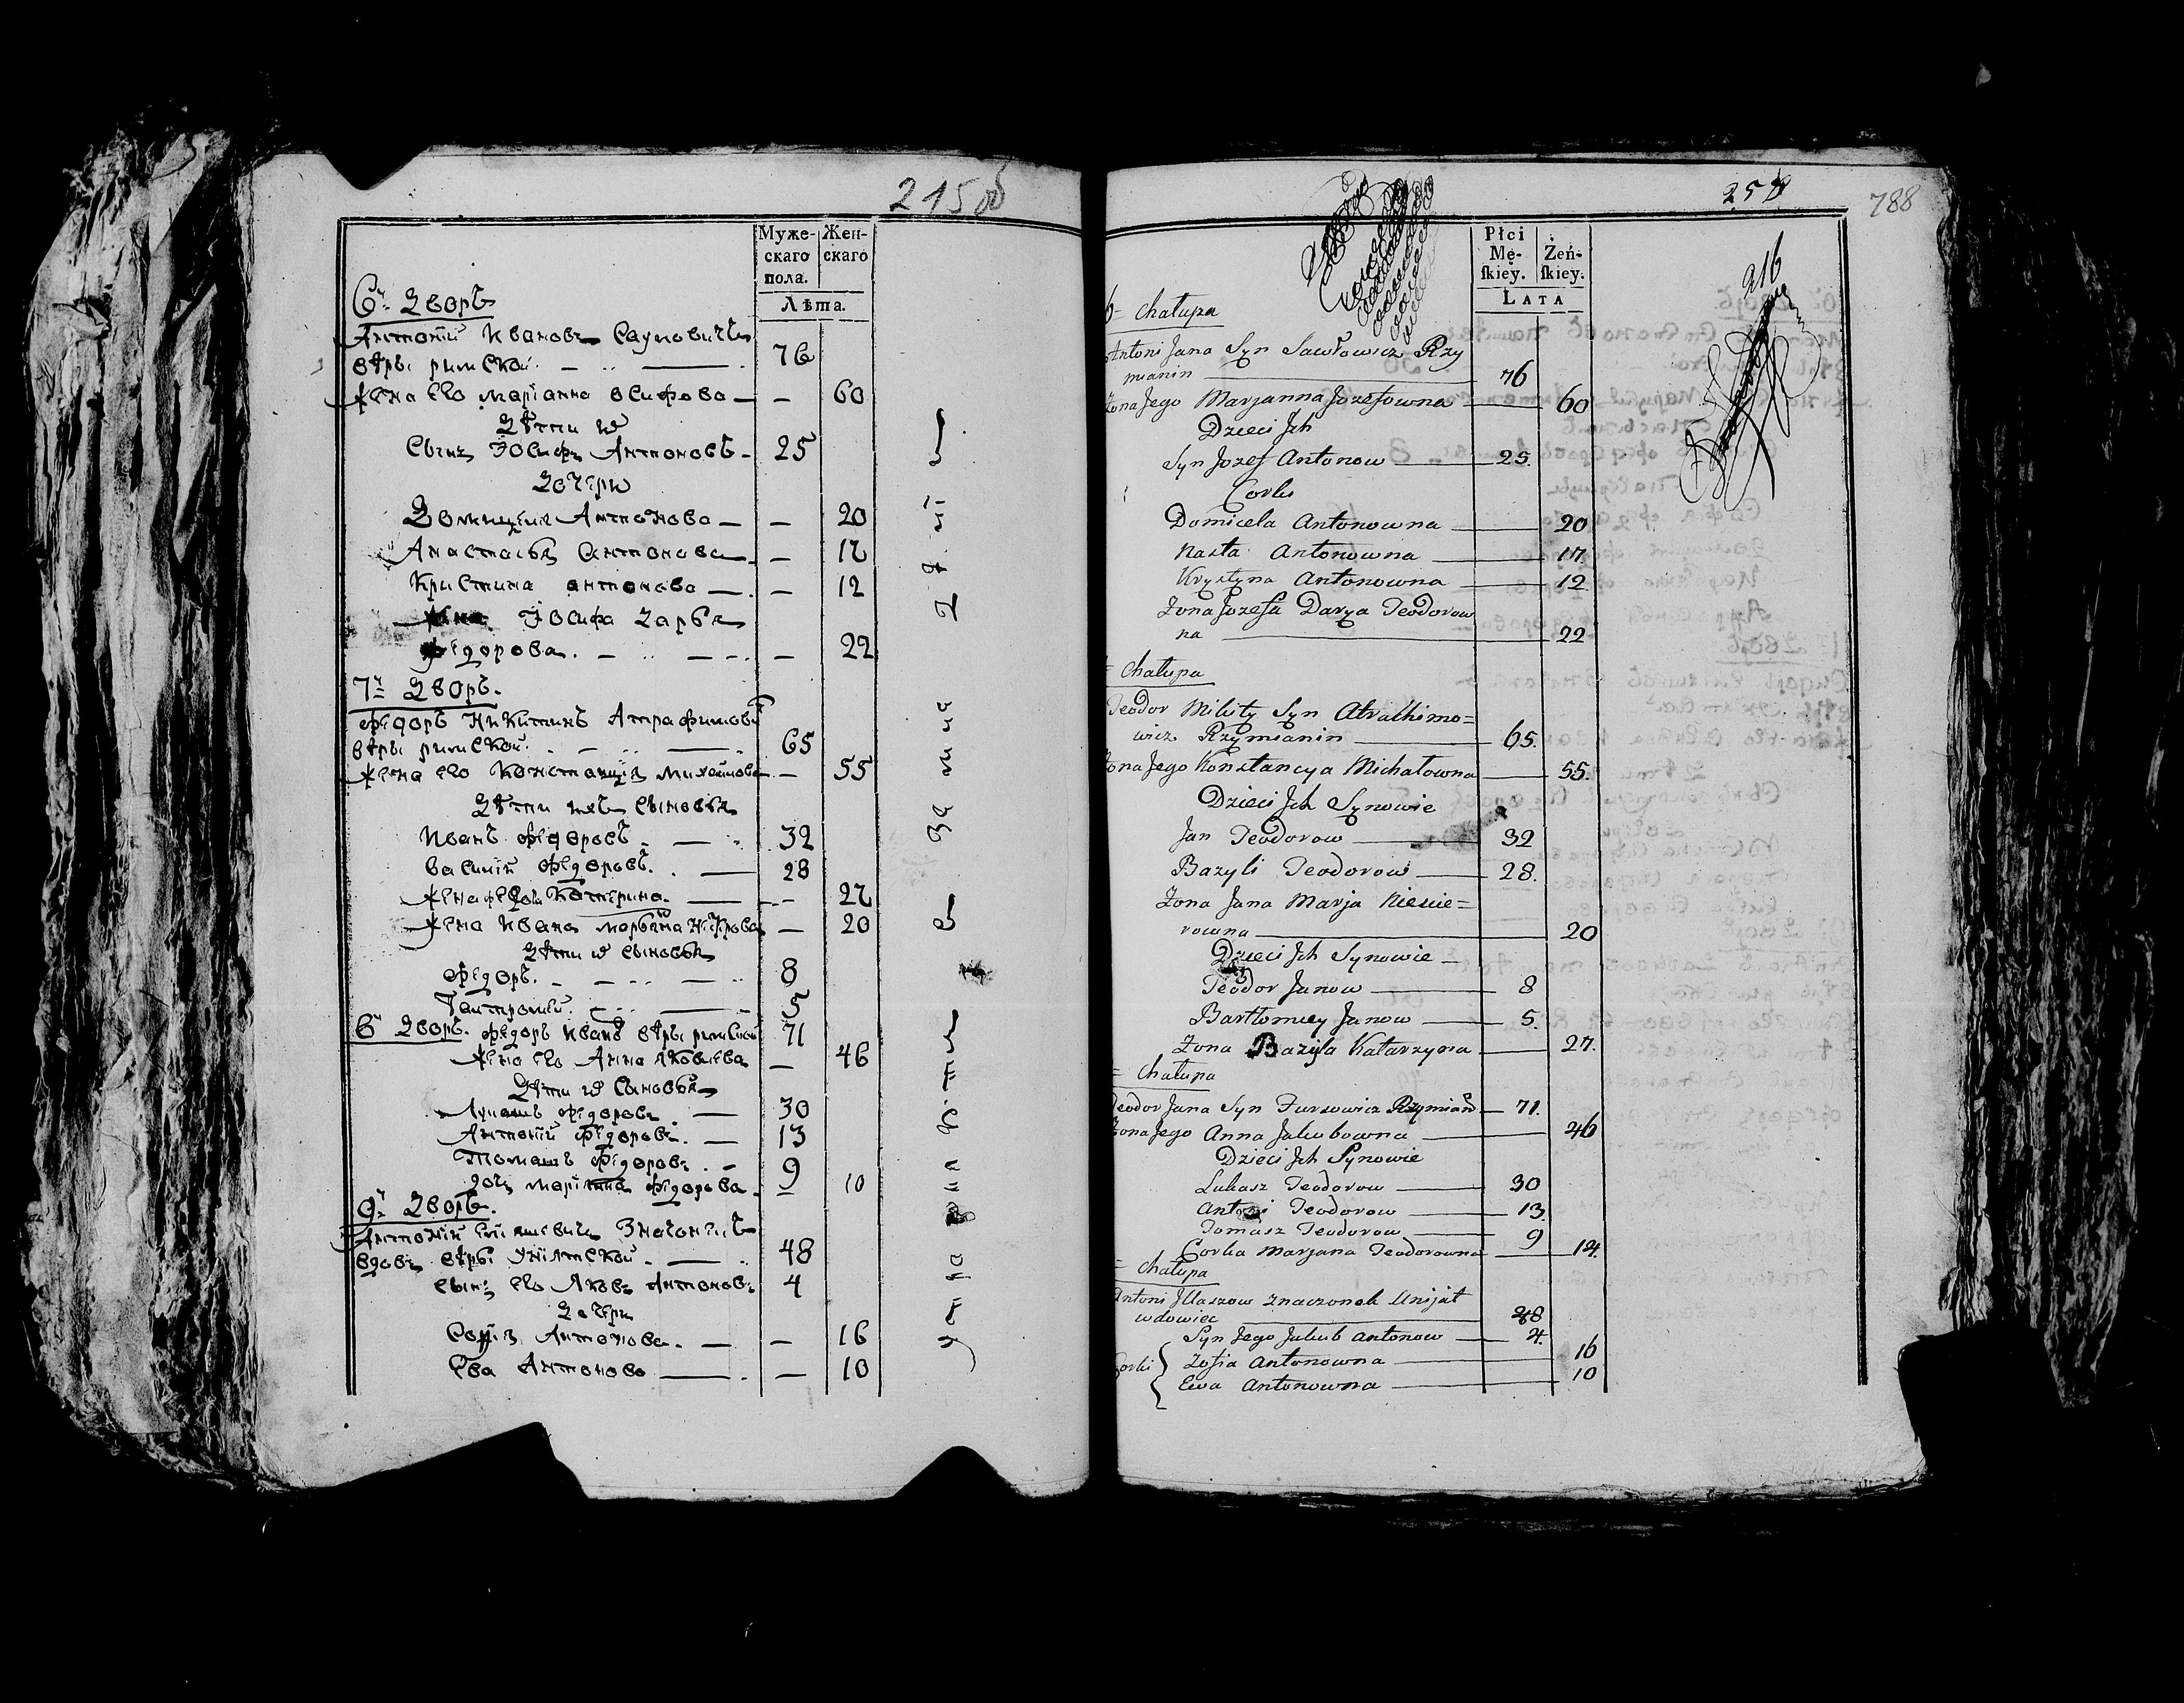 215 об
Муже-
скаго
пола.
Жен-
скаго
Лѣта.
6й Дворъ
Антоній Ивановъ Сауловичъ
вѣры римской. 76
жена его Маріанна Осифова — — 60
Дѣти их
Сынъ Іосифъ Антоновъ — 25
Дочери
Домицеля Антонова — — 20
Анастасья Антонова — — 17
Кристина Антонова — — 12
жена Іосифа Дарья
Федорова. — — 22
7й Дворъ.
Федоръ Никитинъ Атрафимови
вѣры римской. 65
жена его Констанція Михайлова — — 55
Дѣти ихъ Сыновья
Иванъ Федоровъ — 32
Василій Федоровъ. — 28
Катерина. — 27
жена Ивана 20
Дѣти их Сыновья
Федоръ. — 8
5
8й Дворъ. Федоръ Иванъ вѣры римской 71
жена его Анна Яковлева — 46
Дѣти их Сыновья
Лукашъ Федоровъ — 30
Антоній Федоровъ. — 13
Томашъ Федоровъ. — 9
дочь Маріянна Федорова — 10
9й Дворъ.
Антоній Значонокъ
вдовъ вѣры Уніятской. — 48
сынъ его Яковъ Антоновъ 4
Дочери
Софія Антонова. — — 16
Ева Антонова — — 10
257
788
216
Płci
Mę-
skiey.
Żeń-
skiey.
LATA
6= Chałupa
Antoni Jana Syn Sawłowicz Rzy
mianin — 76
Żona Jego Marjanna Jozefowna — 60
Dzieci Ich
Syn Jozef Antonow — 25.
Corki
Domicela Antonowna — 20
Nasta Antonowna — 17
Krystyna Antonowna — 12
Żona Jozefa Darya Teodorow
na — 22
= Chałupa
Teodor Mikity Syn Atrachimo=
wicz Rzymianin — 65.
Żona Jego Konstancya Michałowna — 55.
Dzieci Ich Synowie
Jan Teodorow — 32
Bazyli Teodorow — 28.
Żona Jana Marja
rowna — 20
Dzieci Ich Synowie —
Teodor Janow — 8
Bartłomiey Janow — 5.
Żona Bazyla Katarzyna — 27.
= Chałupa
Teodor Jana Syn Rzymian — 71.
Żona Jego Anna Jakubowna — 46
Dzieci Ich Synowie
Łukasz Teodorow — 30
Antoni Teodorow — 13.
Tomasz Teodorow — 9
Corka Marjana Teodorowna — 14.
= Chałupa
Antoni Jllaszow Znaczonek Unijat
wdowiec — 48
Syn Jego Jakub Antonow — 4.
Corki { Zofia Antonowna — 16
Ewa Antonowna — 10